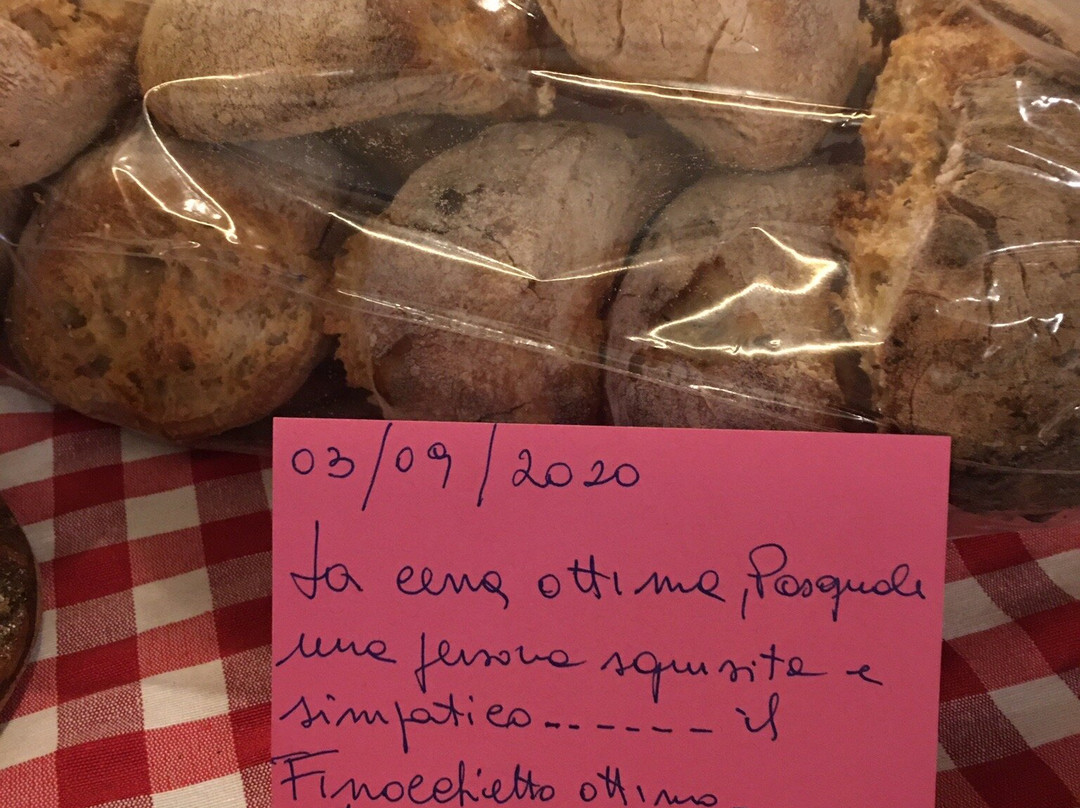 03/09/2020
La cena ottima, Pasquale
una persona squisita e
simpatico------ il
Finocchietto ottimo